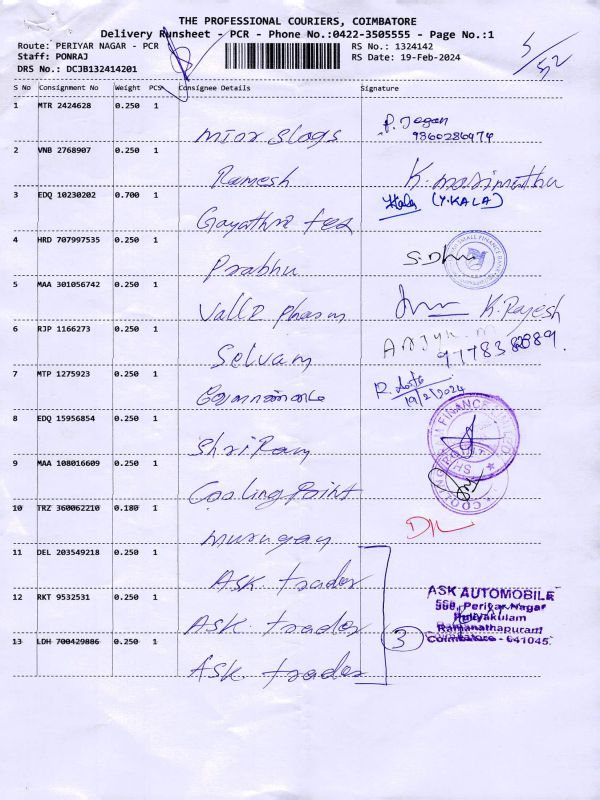 THE PROFESSIONAL COURIERS, COIMBATORE
Delivery Runsheet - PCR - Phone No.:0422-3505555 - Page No.:1
Route: PERIYAR NAGAR - PCR RS No.: 1324142
Staff: PONRAJ RS Date: 19-Feb-2024
DRS No.: DCJB132414201
5/52
S No Consignment No Weight PCS Consignee Details Signature
1 MTR 2424628 0.250 1
P. Jegan
9360286474
2 VNB 2768907 0.250 1
Ramesh K. marimuthu
3 EDQ 10230202 0.700 1
Kala (Y.KALA)
Gayathri Tex
4 HRD 707997535 0.250 1
Prabhu
SMALL FINANCE BANK
5 MAA 301056742 0.250 1
K. Rajesh
6 RJP 1166273 0.250 1
Selvam
7 MTP 1275923 0.250 1
19/2/2024
8 EDQ 15956854 0.250 1
ShriRam
FINANCE
9 MAA 108016609 0.250 1
Cooling Point
10 TRZ 360062210 0.180 1
murugan
11 DEL 203549218 0.250 1
ASK. trader
12 RKT 9532531 0.250 1
ASK. trader
3
ASK AUTOMOBILE
Periyar Nagar
Puliyakulam
Ramanathapuram
Coimbatore - 641045.
13 LDH 700429886 0.250 1
ASK. trader